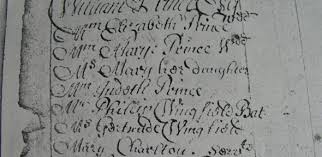 William Prince Esqr
Mrs Elizabeth Prince
Mrs Mary Prince Widd
Ms Mary her daughter
Mrs Judeth Prince
Mr Phillip Wingfield Bat
Ms Gertrude Wingfield
Mary Charlton